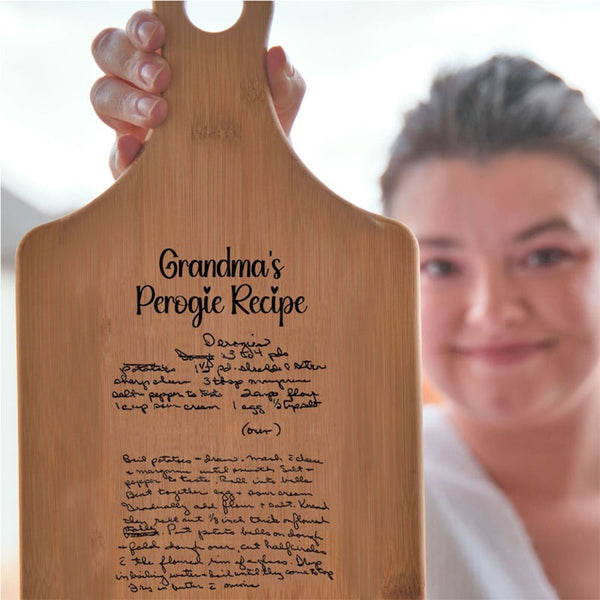 Grandma's
Perogie Recipe
Perogies
3 to 4 pds
potatoes 1 1/2 pd. shredded
sharp 3 tbsp margarine
salt + pepper to taste 2 cups flour
1 cup sour cream 1 egg 1/2 tsp salt
(over)
Boil potatoes + drain. Mash
+ margarine until smooth salt +
pepper to taste. Roll into balls
Beat together egg + sour cream
Gradually add flour + salt. Knead
roll out 1/8 inch thick on floured
. Put potato balls on dough
+ fold dough over, cut half circles
the floured rim of a glass. Drop
in boiling water + boil until they come to top
Fry in butter & onions